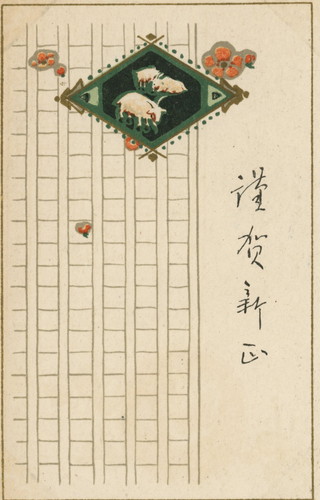 謹賀新正